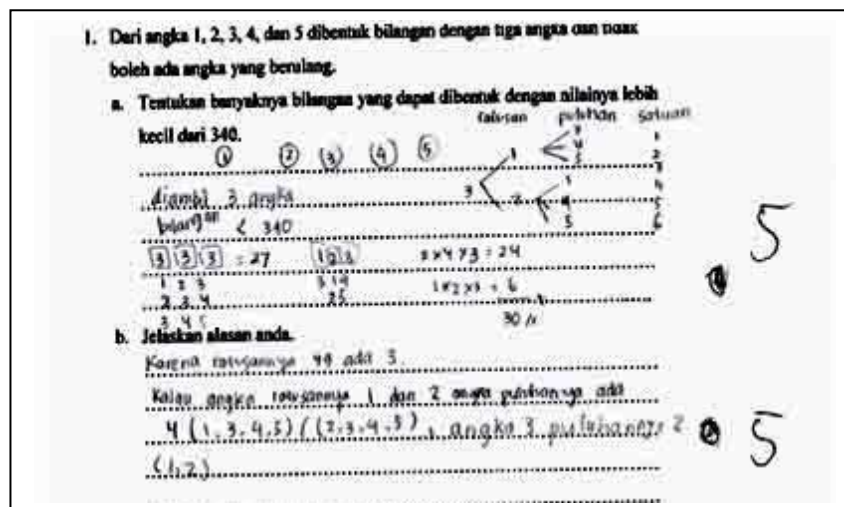 1. Dari angka 1, 2, 3, 4, dan 5 dibentuk bilangan dengan tiga angka dan tidak
boleh ada angka yang berulang.
a. Tentukan banyaknya bilangan yang dapat dibentuk dengan nilainya lebih
kecil dari 340.
ratusan puluhan satuan
1 2 (3) (4) 5
diambil 3 angka
bilangan < 340
3 1 2
3 4 5
1 4 5
1 2 3 4 5 6
3 3 3 = 27
1 2 3
2 3 4
3 4 5
1 2 3
3 1 4
25
2 x 4 x 3 = 24
1 x 2 x 3 = 6
30
5
b. Jelaskan alasan anda.
Karena ratusannya yg ada 3.
Kalau angka ratusannya 1 dan 2 angka puluhannya ada
4 (1, 3, 4, 5) / (2, 3, 4, 5), angka 3 puluhannya 2
(1, 2)
5